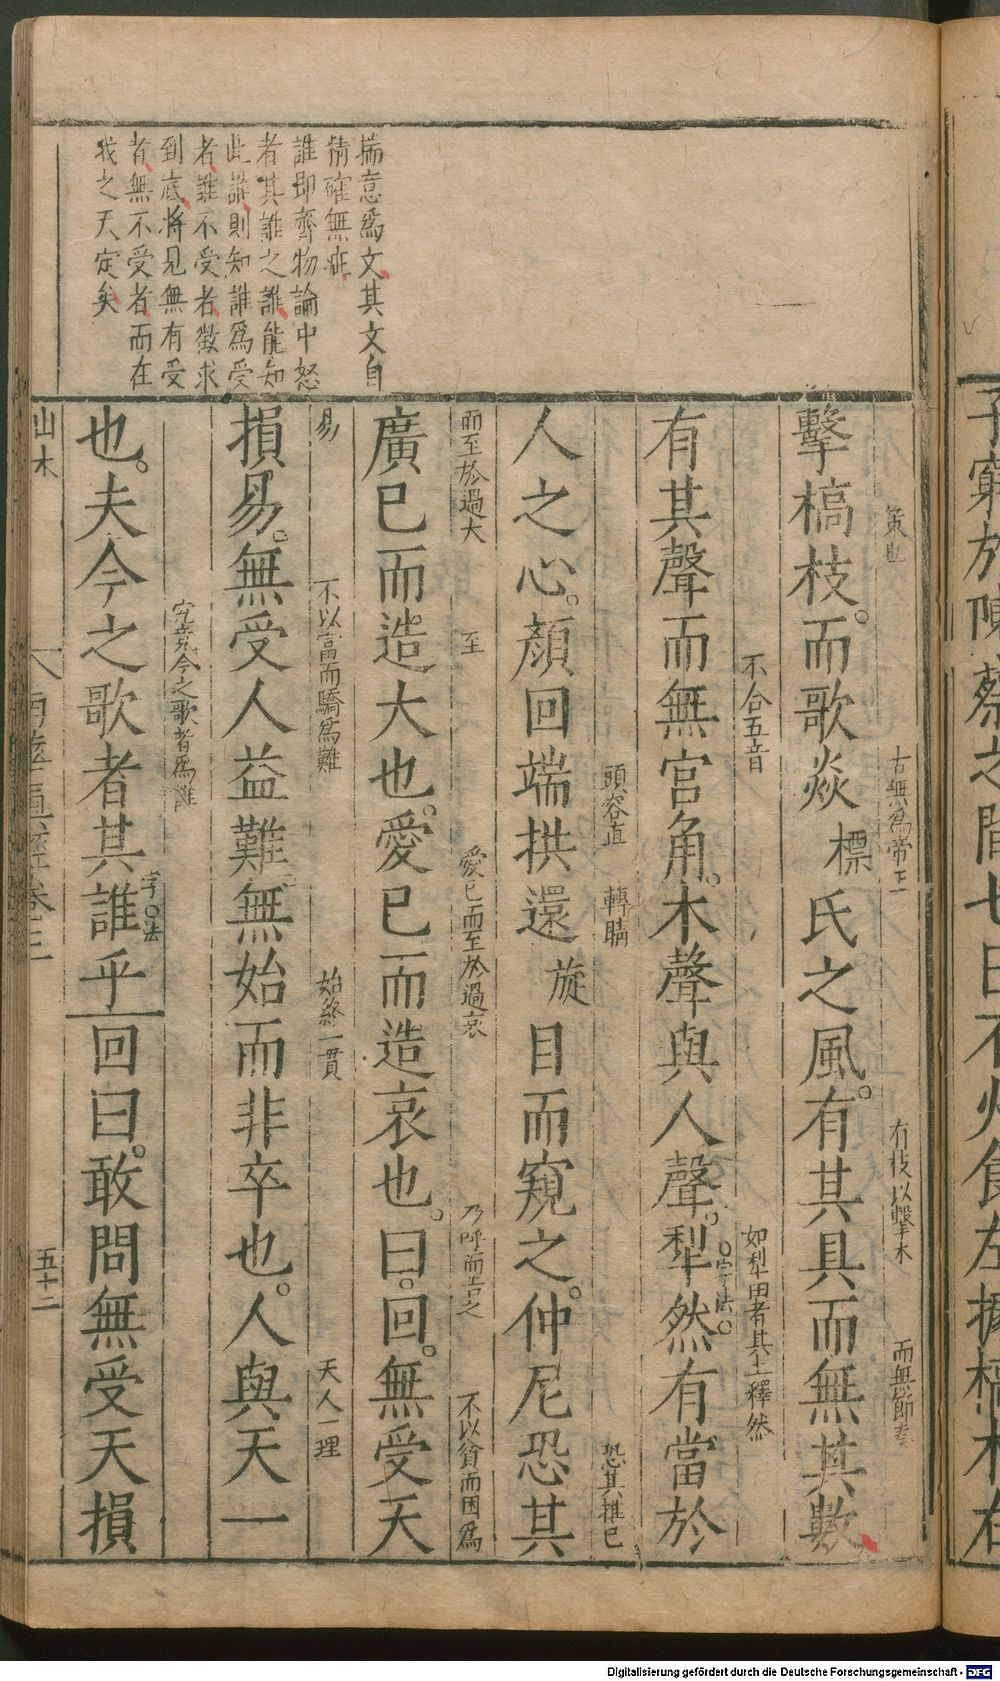 揣意爲文其文自
精確無疵
誰即齊物論中怒
者其誰之誰能知
此誰則知誰爲受
者誰不受者徵求
到底將見無有受
者無不受者而在
我之天定矣
子窮於陳蔡之間七日不火食左據槁木右
策也
古無爲帝王
有枝以擊木
而無節奏
擊槁枝。而歌焱標氏之風。有其具而無其數
不合五音
如犁田者其土釋然
有其聲而無宮角。木聲與人聲。犁然有當於
字法
頭容直
轉睛
恐其推己
人之心。顏回端拱還旋目而窺之。仲尼恐其
而至於過大
至
愛己而至於過哀
乃呼而告之
不以貧而困爲
廣己而造大也。愛己而造哀也。曰。回。無受天
易
不以富而驕爲難
始終一貫
天人一理
損易。無受人益難無始而非卒也。人與天一
究竟今之歌者爲誰
也。夫今之歌者其誰乎回曰。敢問無受天損
字法
山木
南華眞經卷三
五十二
Digitalisierung gefördert durch die Deutsche Forschungsgemeinschaft - DFG